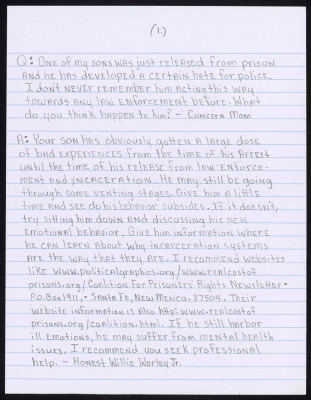 (1.)
Q: One of my sons was just released from prison
and he has developed a certain hate for police.
I dont never remember him acting this way
towards any law enforcement before. What
do you think happen to him? - Concern Mom
A: Your son has obviously gotten a large dose
of bad experiences from the time of his arrest
until the time of his release from law enforce-
ment and incaceration. He may still be going
through some venting stages. Give him a little
time and see do his behavior subsides. If it doesn't,
try sitting him down and discussing his new
emotional behavior. Give him information where
he can learn about why incarceration systems
are the way that they are. I recommend websites
like www.politicalgraphics.org/www.realcostof
prisons.org/Coalition For Prisoners' Rights Newsletter •
P.O. Box 1911, • Santa Fe, New Mexico. 87504. Their
website information is also http:www.realcostof
prisons.org/coalition.html. If he still harbor
ill emotions, he may suffer from mental health
issues. I recommend you seek professional
help. - Honest Willie Worley Jr.